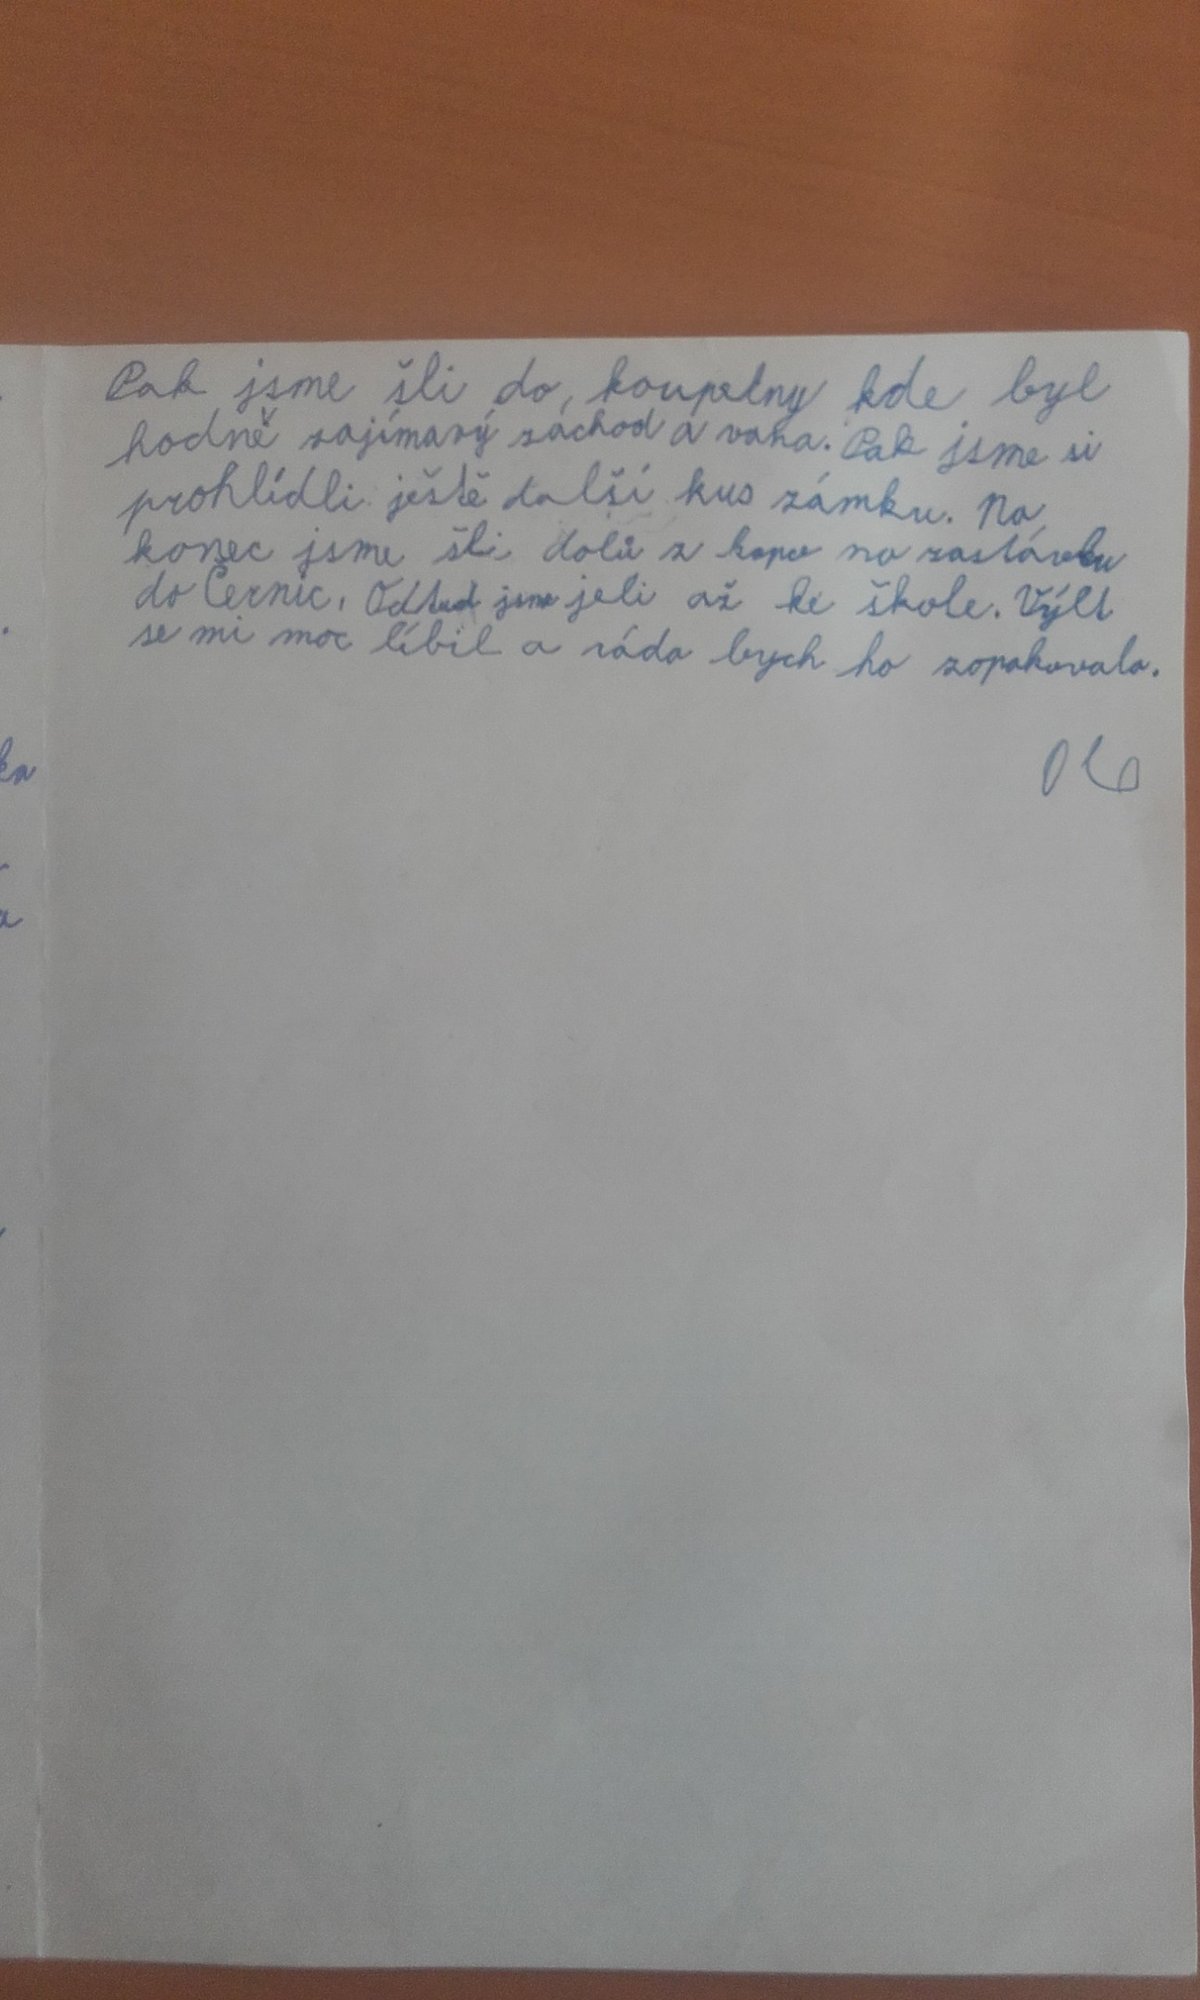 Pak jsme šli do, koupelny kde byl
hodně zajímavý záchod a vana. Pak jsme si
prohlídli ještě další kus zámku. Na
konec jsme šli dolů z kopce na zastávku
do Černic. Odtud jsme jeli až ke škole. Výlt
se mi moc líbil a ráda bych ho zopakovala.